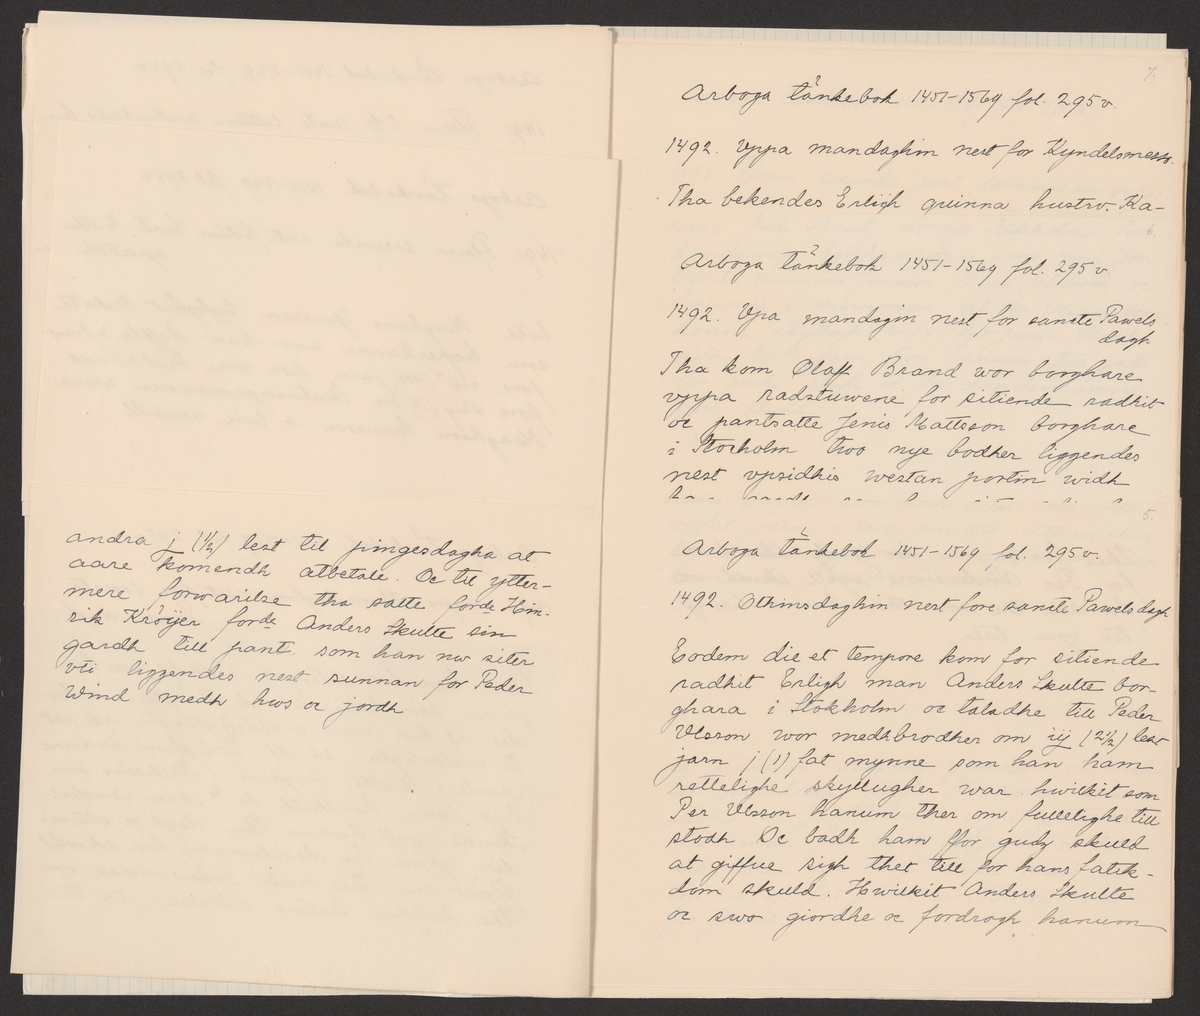 andra j (1/2) lest til pingesdagha at
aare komendh atbetale. Oc til ytter-
mere forwaridze tha satte forde Hin-
rik Kröijer forde Anders Skulte sin
gardh till pant som han nw siter
vti liggendes nest sunnan for Peder
Wind medh hws oc jordh
7.
Arboga tänkebok 1451-1569 fol. 295 v.
1492. Vppa mandaghin nest for Kyndelsmesso.
Tha bekendes Erligh quinna hustrv. Ka-
6.
Arboga tänkebok 1451-1569 fol. 295 v.
1492. Vpa mandagin nest for sancte Pawels
dagh
Tha kom Olaff Brand wor borghare
vppa radstuwene for sitiende radhit
oc pantsatte Jenis Mattsson borghare
i Stocholm two nye bodher liggendes
nest vpsidhis westan portin widh
5.
Arboga tänkebok 1451-1569 fol. 295 v.
1492. Othinsdaghin nest fore sancte Pawels dagh
Eodem die et tempore kom for sitiende
radhit Erligh man Anders Skulte bor-
ghara i Stokholm oc taladhe till Peder
Vlsson wor medhbrodher om iij (2½) lest
jarn j (1) fat mynne som han ham
rettelighe skyllugher war hwilkit som
Per Vlsson hanum ther om fullelighe till
stodh Oc badh ham ffor gudz skuld
at giffue sigh thet till for hans fatik-
dom skuld. Hwilkit Anders Skulte
oc swo giordhe oc fordrogh hanum